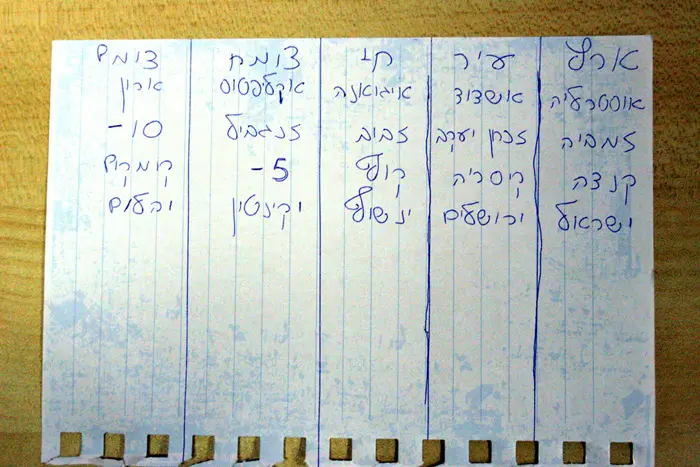 ארץ עיר חי צומח דומם
אוסטרליה אשדוד איגואנה אקליפטוס ארון
זמביה זכרון יעקב זבוב זנגביל 10-
קנדה קיסריה קוף 5- קומקום
ישראל ירושלים ינשוף יקינטון יהלום